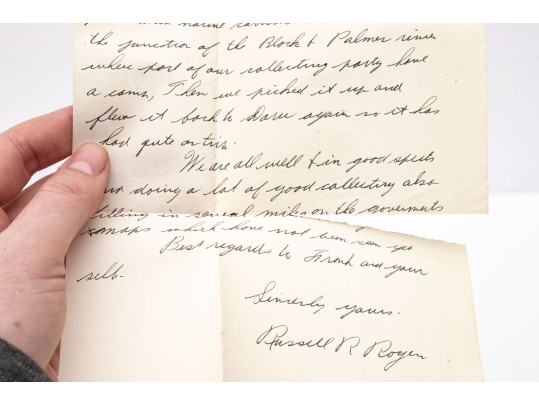 the junction of the Black & Palmer river
where part of our collecting party have
a camp, Then we picked it up and
flew it back to Daru again so it has
had quite a trip.
We are all well & in good spirits
doing a lot of good collecting also
filling in several miles on the goverments
maps which have not been seen yet
Best regards to Frank and your
self.
Sincerly yours.
Russell R Rogers